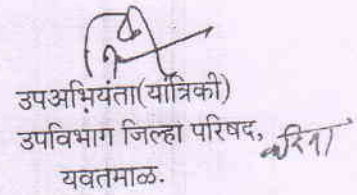 उपअभियंता(यांत्रिकी)
उपविभाग जिल्हा परिषद, करिता
यवतमाळ.